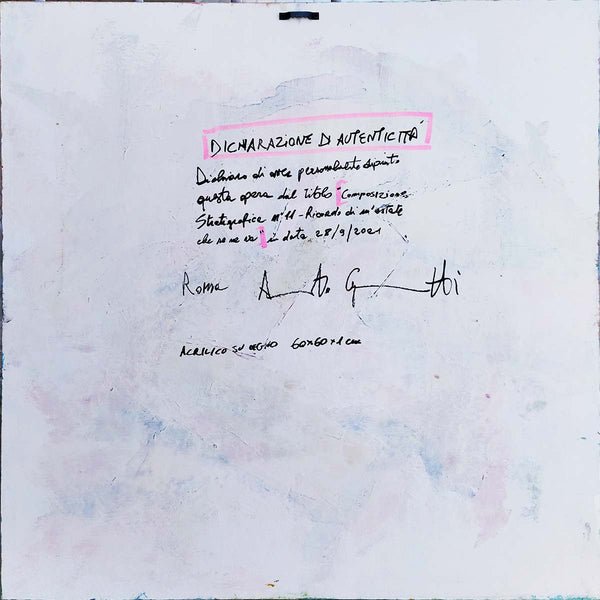 DICHIARAZIONE DI AUTENTICITÀ
Dichiaro di aver personalmente dipinto
questa opera dal titolo "Composizione
Stratigrafica n°11 - Ricordo di un'estate
che se ne va" in data 28/9/2021
Roma
ACRILICO SU LEGNO 60x60x1 cm